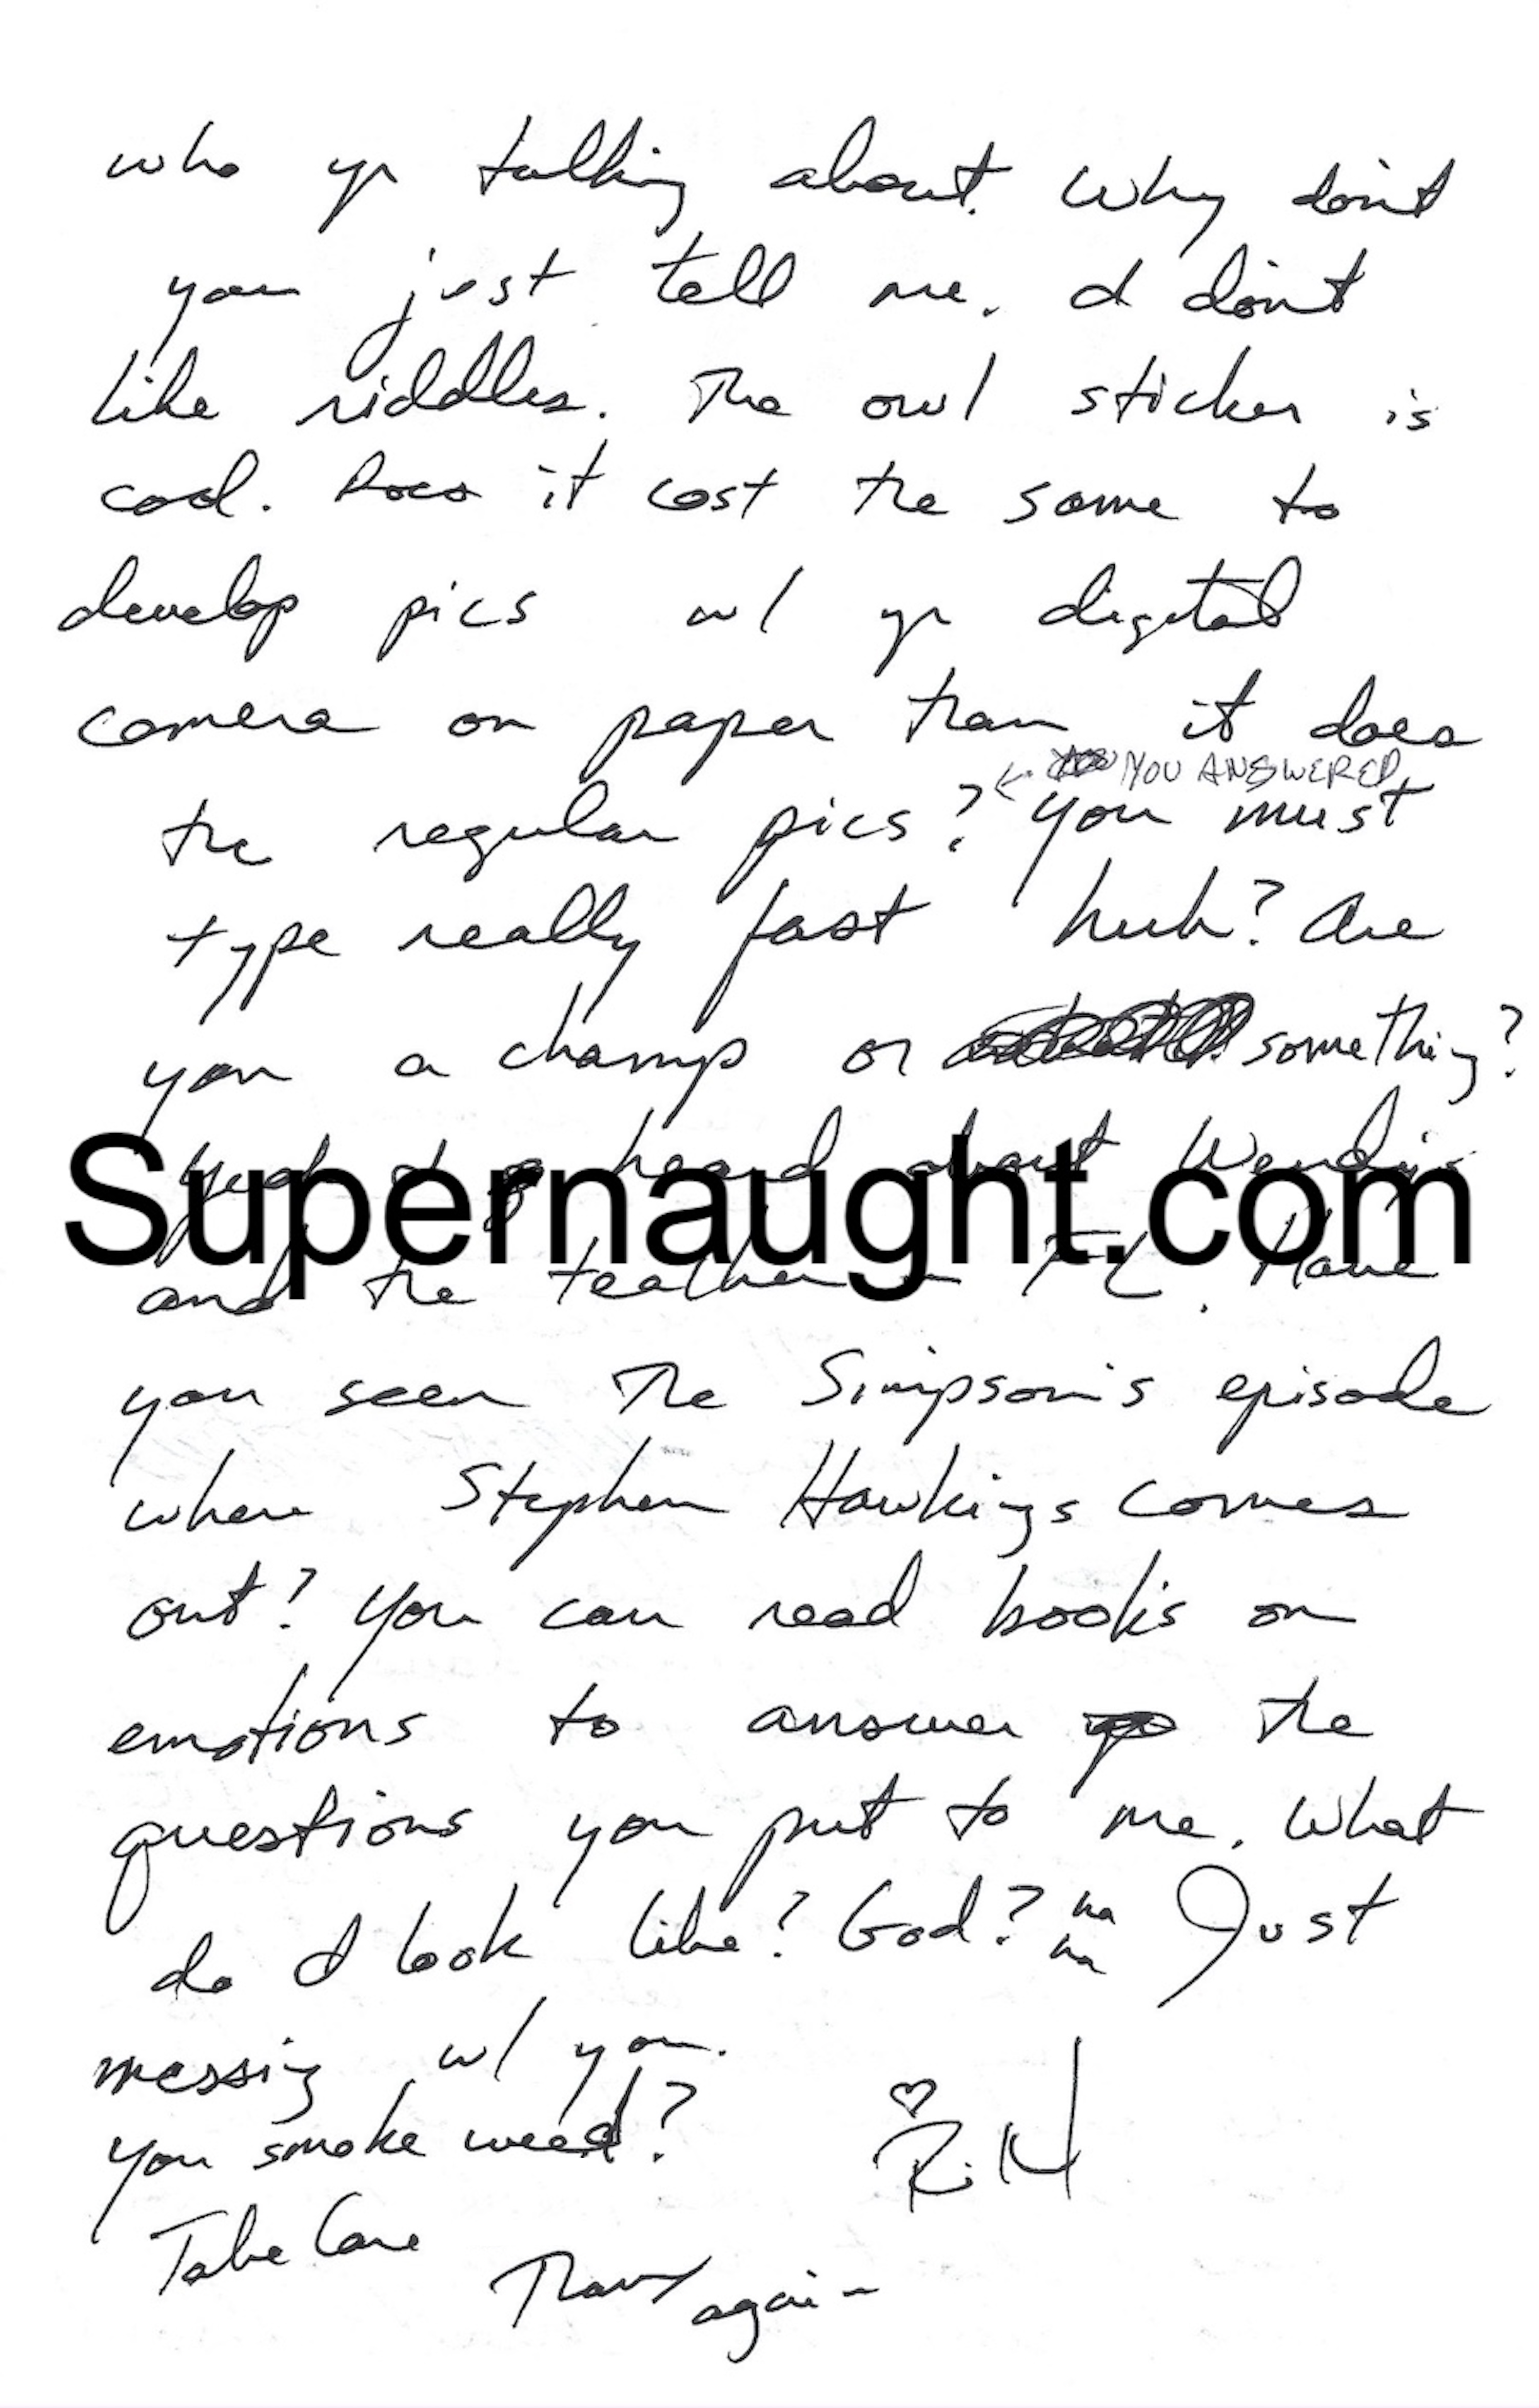 who yr talking about. Why don't
you just tell me. I don't
like riddles. The owl sticker is
cool. Does it cost the same to
develop pics w/ yr digital
camera on paper than it does
← YOU ANSWERED
the regular pics? You must
type really fast huh? Are
you a champ or something?
Yeah I heard about Wendy's
Supernaught.com
and the teacher in FL. Have
you seen The Simpson's episode
where Stephen Hawkings comes
out? You can read books on
emotions to answer the
questions you put to me. What
do I look like? God? ha ha Just
messing w/ you.
You smoke weed?
Take Care
Thanx again